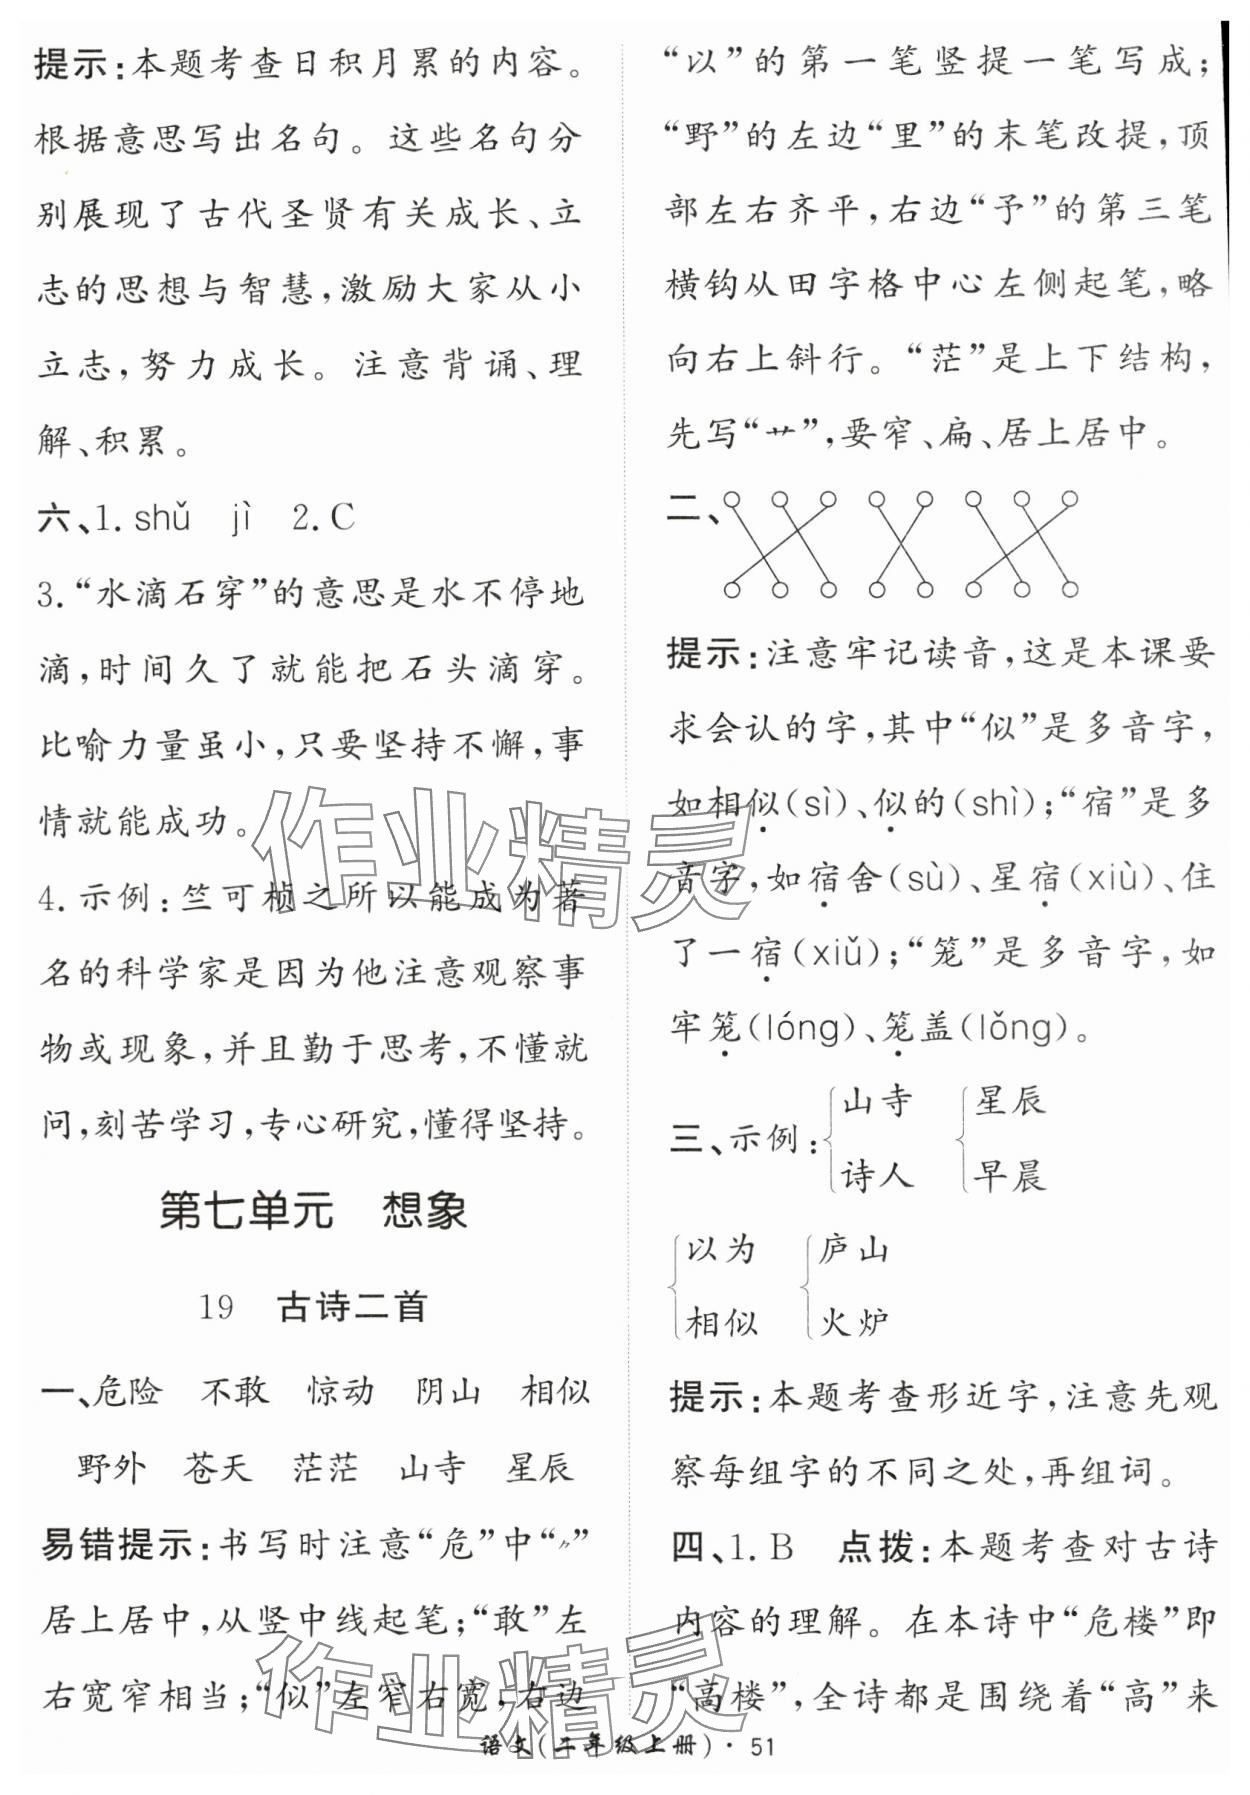 提示:本题考查日积月累的内容。
根据意思写出名句。这些名句分
别展现了古代圣贤有关成长、立
志的思想与智慧,激励大家从小
立志,努力成长。注意背诵、理
解、积累。
六、1. shǔ jì 2. C
3. “水滴石穿”的意思是水不停地
滴,时间久了就能把石头滴穿。
比喻力量虽小,只要坚持不懈,事
情就能成功。
4. 示例:竺可桢之所以能成为著
名的科学家是因为他注意观察事
物或现象,并且勤于思考,不懂就
问,刻苦学习,专心研究,懂得坚持。
第七单元 想象
19 古诗二首
一、危险 不敢 惊动 阴山 相似
野外 苍天 茫茫 山寺 星辰
易错提示:书写时注意“危”中“〃”
居上居中,从竖中线起笔;“敢”左
右宽窄相当;“似”左窄右宽,右边
“以”的第一笔竖提一笔写成;
“野”的左边“里”的末笔改提,顶
部左右齐平,右边“予”的第三笔
横钩从田字格中心左侧起笔,略
向右上斜行。“茫”是上下结构,
先写“艹”,要窄、扁、居上居中。
二、
提示:注意牢记读音,这是本课要
求会认的字,其中“似”是多音字,
如相似(sì)、似的(shì);“宿”是多
音字,如宿舍(sù)、星宿(xiù)、住
了一宿(xiǔ);“笼”是多音字,如
牢笼(lóng)、笼盖(lǒng)。
三、示例:
山寺 星辰
诗人 早晨
以为 庐山
相似 火炉
提示:本题考查形近字,注意先观
察每组字的不同之处,再组词。
四、1. B 点拨:本题考查对古诗
内容的理解。在本诗中“危楼”即
“高楼”,全诗都是围绕着“高”来
语文(二年级上册)· 51
作业精灵
作业精灵